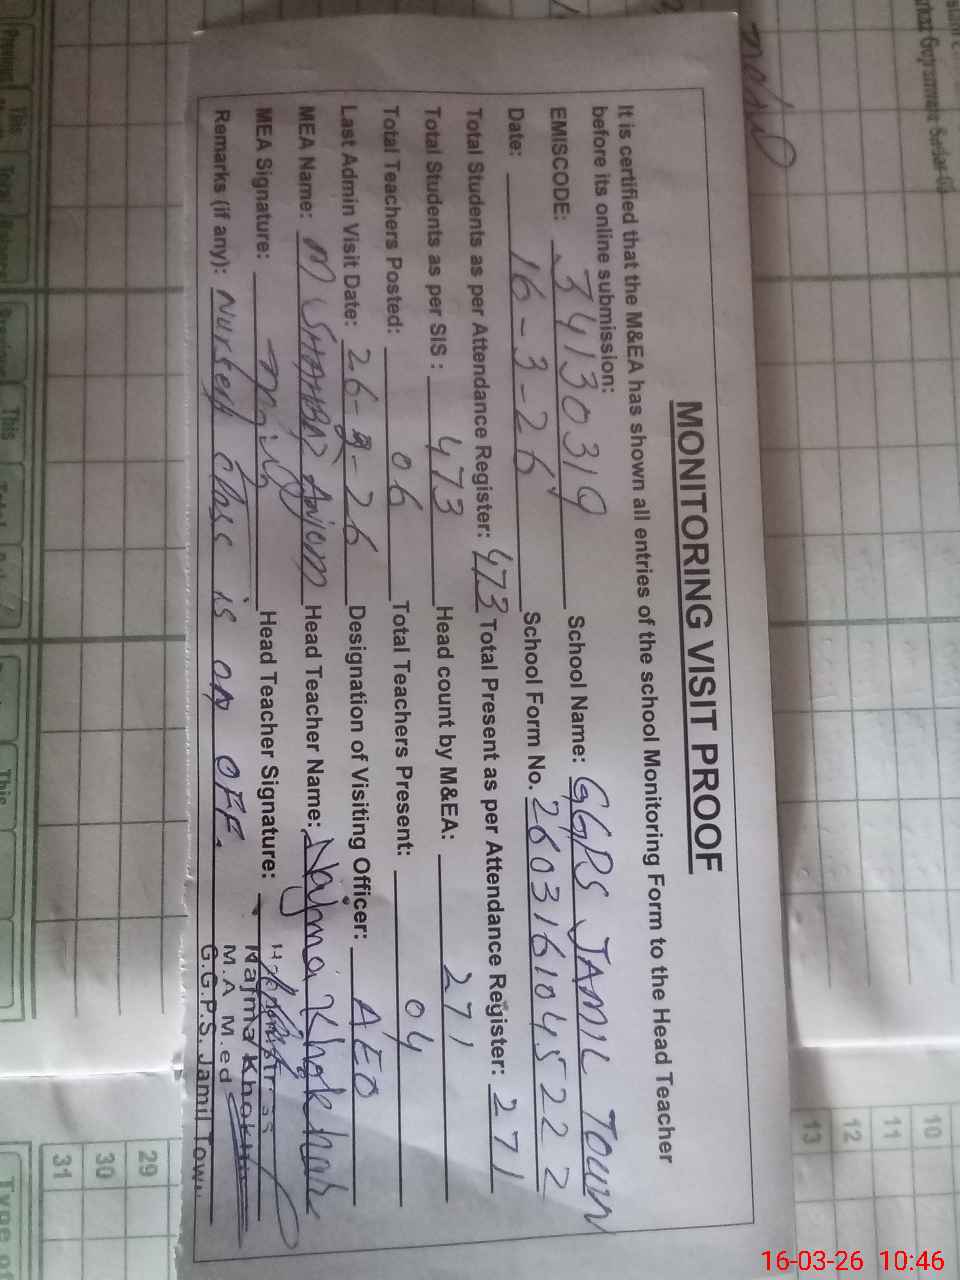 MONITORING VISIT PROOF
It is certified that the M&EA has shown all entries of the school Monitoring Form to the Head Teacher
before its online submission:
EMISCODE: 34130319 School Name: GGPS JAMIL TOWN
Date: 16-3-26 School Form No. 2603161045222
Total Students as per Attendance Register: 473 Total Present as per Attendance Register: 271
Total Students as per SIS : 473 Head count by M&EA: 271
Total Teachers Posted: 06 Total Teachers Present: 04
Last Admin Visit Date: 26-2-26 Designation of Visiting Officer: AEO
MEA Name: M SHAHBAZ Anjum Head Teacher Name: Najma Khokhar
MEA Signature: Head Teacher Signature:
Najma Khokhar
M.A M.ed
G.G.P.S. Jamil Town
Remarks (if any): Nursery class is on OFF.
10
11
12
13
29
30
31
Type of
This
Total
16-03-26 10:46